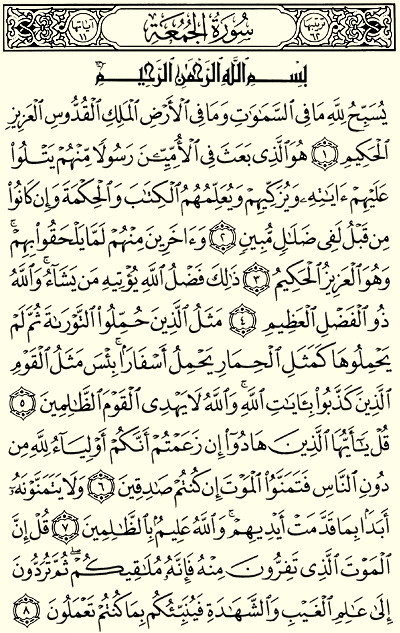 سُورَةُ الجُمُعَةِ
بِسْمِ ٱللَّهِ ٱلرَّحْمَٰنِ ٱلرَّحِيمِ
يُسَبِّحُ لِلَّهِ مَا فِى ٱلسَّمَٰوَٰتِ وَمَا فِى ٱلْأَرْضِ ٱلْمَلِكِ ٱلْقُدُّوسِ ٱلْعَزِيزِ
ٱلْحَكِيمِ ١ هُوَ ٱلَّذِى بَعَثَ فِى ٱلْأُمِّيِّـۧنَ رَسُولًا مِّنْهُمْ يَتْلُوا۟
عَلَيْهِمْ ءَايَٰتِهِۦ وَيُزَكِّيهِمْ وَيُعَلِّمُهُمُ ٱلْكِتَٰبَ وَٱلْحِكْمَةَ وَإِن كَانُوا۟
مِن قَبْلُ لَفِى ضَلَٰلٍ مُّبِينٍ ٢ وَءَاخَرِينَ مِنْهُمْ لَمَّا يَلْحَقُوا۟ بِهِمْ ۚ
وَهُوَ ٱلْعَزِيزُ ٱلْحَكِيمُ ٣ ذَٰلِكَ فَضْلُ ٱللَّهِ يُؤْتِيهِ مَن يَشَآءُ ۚ وَٱللَّهُ
ذُو ٱلْفَضْلِ ٱلْعَظِيمِ ٤ مَثَلُ ٱلَّذِينَ حُمِّلُوا۟ ٱلتَّوْرَىٰةَ ثُمَّ لَمْ
يَحْمِلُوهَا كَمَثَلِ ٱلْحِمَارِ يَحْمِلُ أَسْفَارًۢا ۚ بِئْسَ مَثَلُ ٱلْقَوْمِ
ٱلَّذِينَ كَذَّبُوا۟ بِـَٔايَٰتِ ٱللَّهِ ۚ وَٱللَّهُ لَا يَهْدِى ٱلْقَوْمَ ٱلظَّٰلِمِينَ ٥
قُلْ يَٰٓأَيُّهَا ٱلَّذِينَ هَادُوٓا۟ إِن زَعَمْتُمْ أَنَّكُمْ أَوْلِيَآءُ لِلَّهِ مِن
دُونِ ٱلنَّاسِ فَتَمَنَّوُا۟ ٱلْمَوْتَ إِن كُنتُمْ صَٰدِقِينَ ٦ وَلَا يَتَمَنَّوْنَهُۥٓ
أَبَدًۢا بِمَا قَدَّمَتْ أَيْدِيهِمْ ۚ وَٱللَّهُ عَلِيمٌۢ بِٱلظَّٰلِمِينَ ٧ قُلْ إِنَّ
ٱلْمَوْتَ ٱلَّذِى تَفِرُّونَ مِنْهُ فَإِنَّهُۥ مُلَٰقِيكُمْ ۖ ثُمَّ تُرَدُّونَ
إِلَىٰ عَٰلِمِ ٱلْغَيْبِ وَٱلشَّهَٰدَةِ فَيُنَبِّئُكُم بِمَا كُنتُمْ تَعْمَلُونَ ٨